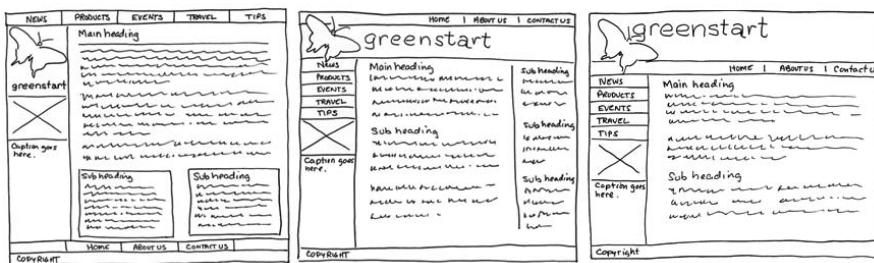 NEWS PRODUCTS EVENTS TRAVEL TIPS
Main heading
greenstart
Caption goes
here.
Subheading Sub heading
HOME ABOUT US CONTACT US
COPYRIGHT
HOME | ABOUT US | CONTACT US
greenstart
NEWS
PRODUCTS
EVENTS
TRAVEL
TIPS
Caption goes
here.
Main heading
Sub heading
Sub heading
Sub heading
Sub heading
COPYRIGHT
greenstart
HOME | ABOUT US | Contact us
NEWS
PRODUCTS
EVENTS
TRAVEL
TIPS
Caption goes
here.
Main heading
Sub heading
Copyright